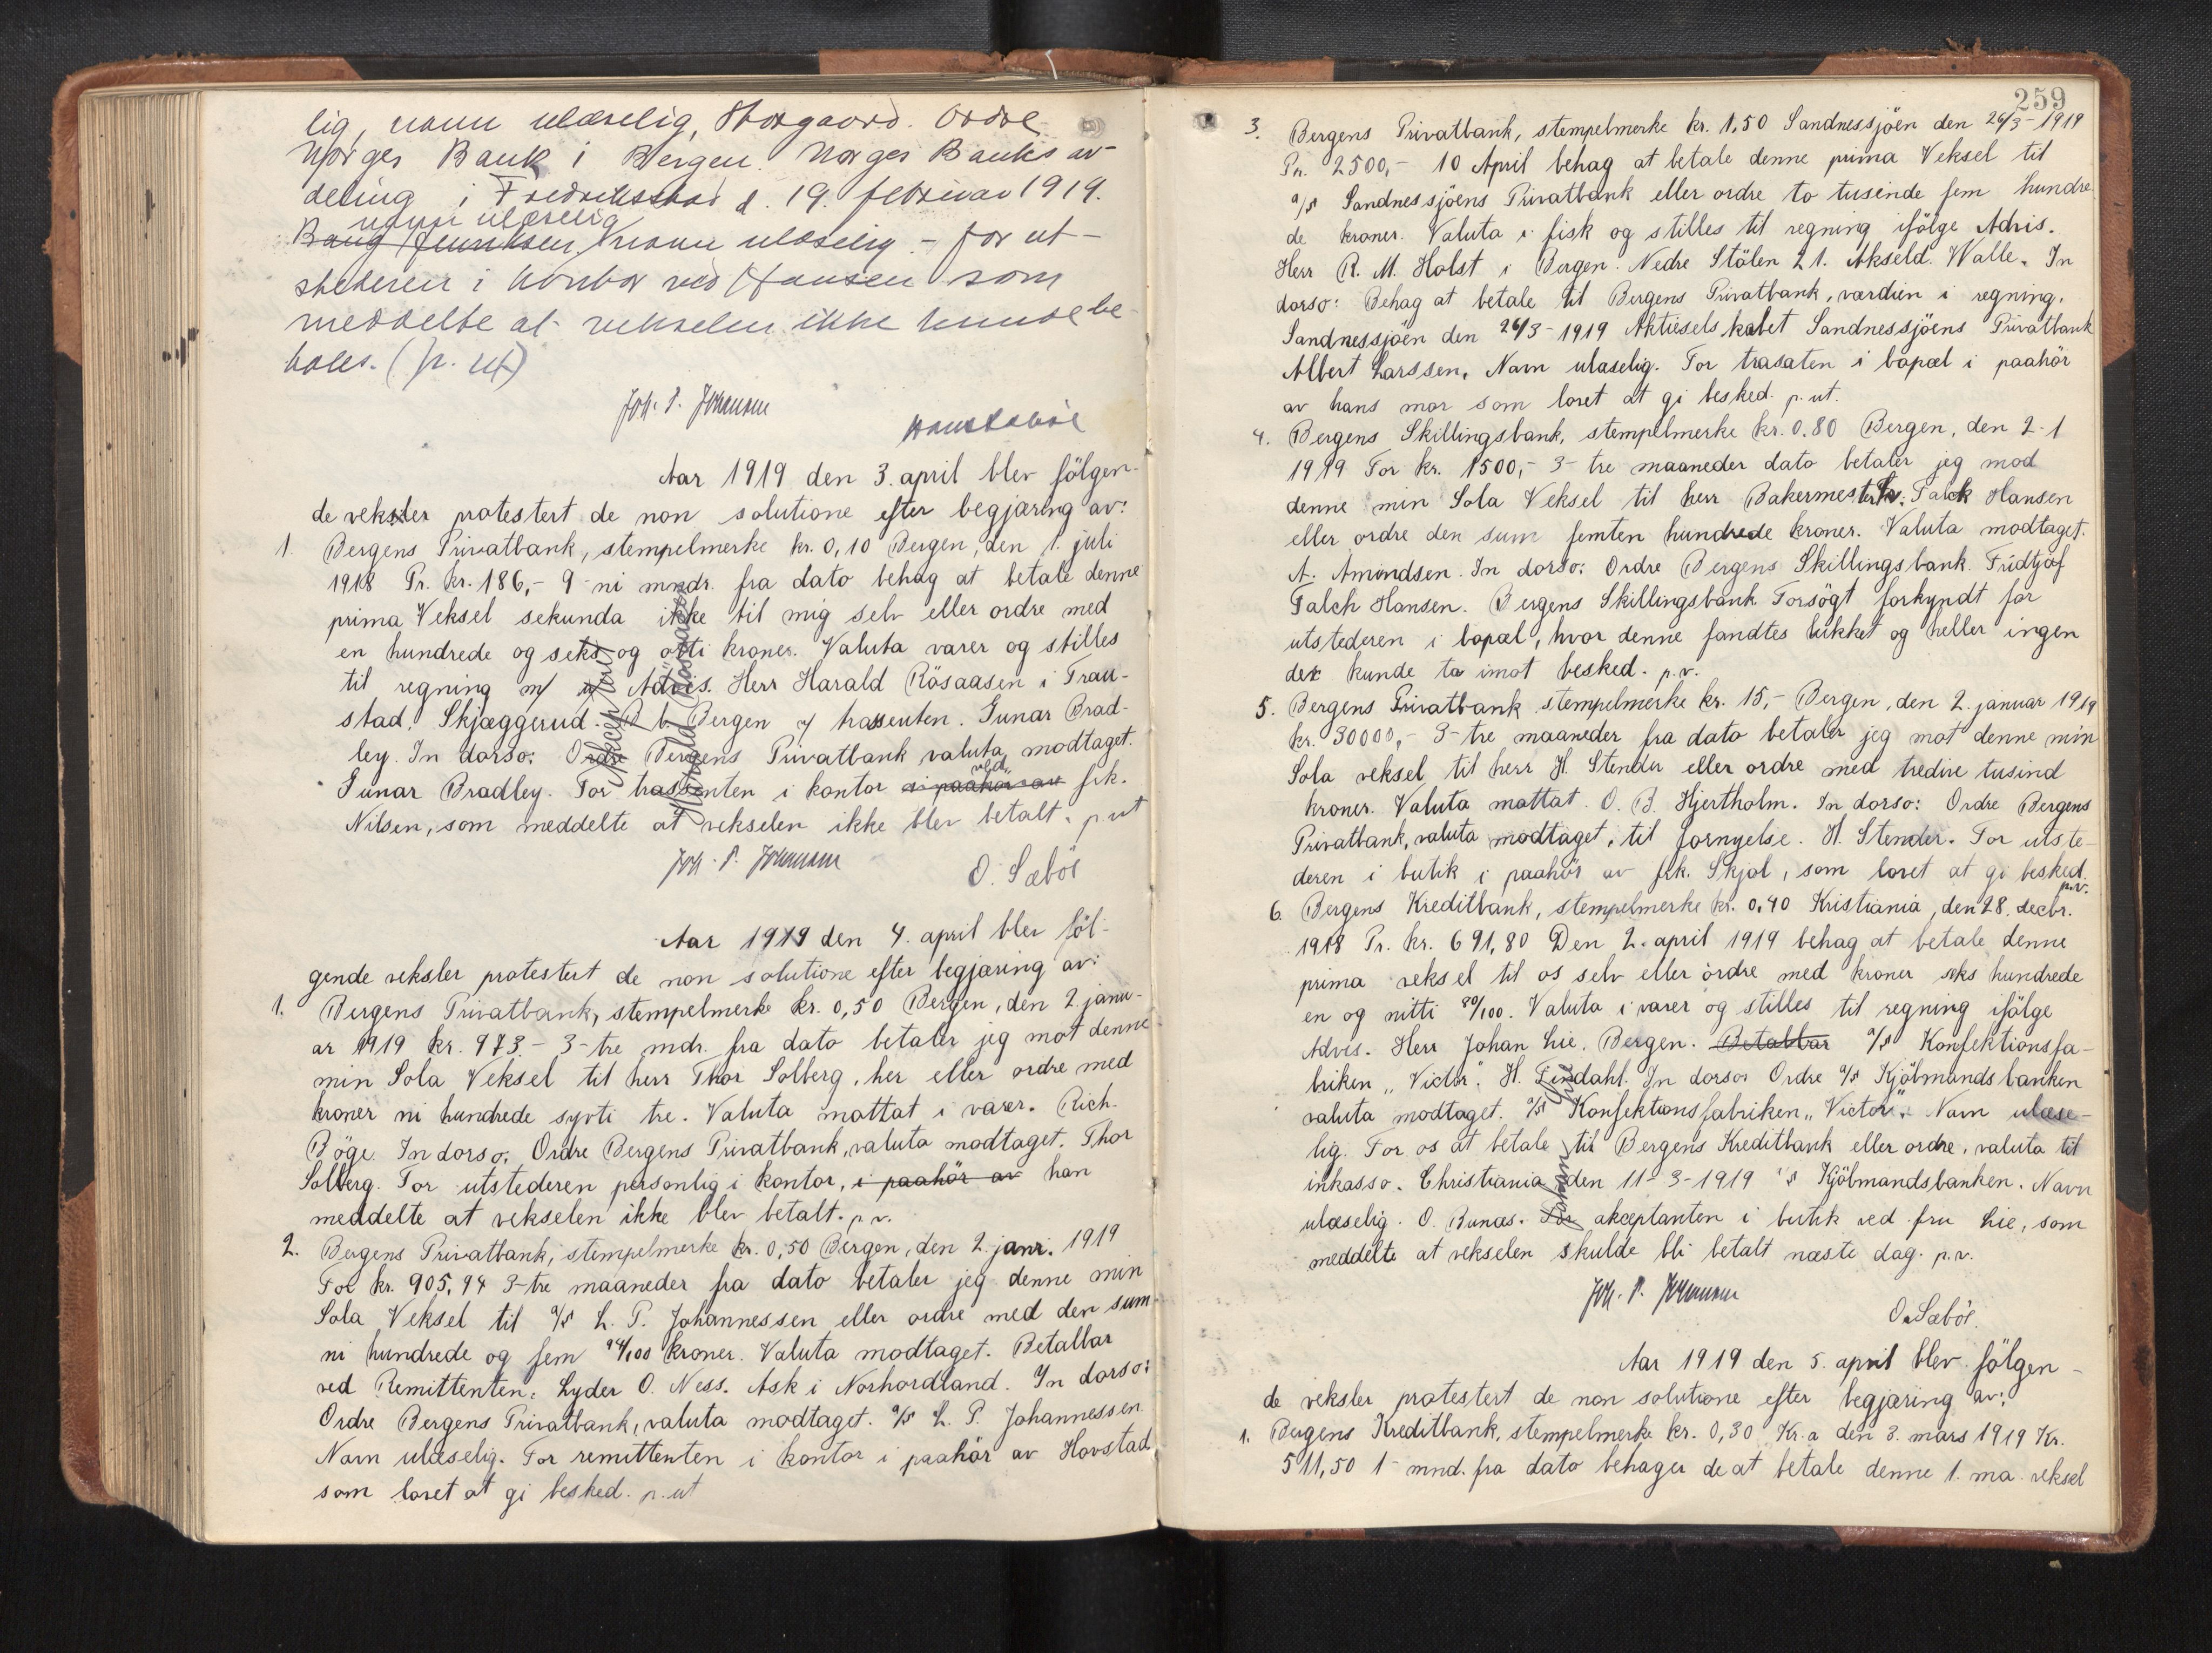 lig, navn ulæselig, Storgaard. Ordre
Norges Bank i Bergen. Norges Banks av-
deling i Fredriksstad d. 19. februar 1919.
navn ulæselig
Bang Henriksen, navn ulæselig - for ut-
stederen i kontor ved Hansen som
meddelte at vekselen ikke kunde be-
tales. (p. ut)
Joh. P. Johansen
Aar 1919 den 3. april blev fölgen-
de veksler protestert de non solutione efter begjæring av:
1. Bergens Privatbank, stempelmerke kr. 0,10 Bergen, den 1. juli
1918 Pr. kr. 186,- 9 - ni mndr. fra dato behag at betale denne
prima Veksel sekunda ikke til mig selv eller ordre med
en hundrede og seks og otti kroner. Valuta varer og stilles
til regning m/ Advis. Herr Harald Rösaasen i Trau-
stad. Skjæggerud. B. b. Bergen v/ trassenten. Gunar Brad-
ley. In dorso: Ordre Bergens Privatbank valuta modtaget.
Akcepteret Harald Rösaasen
Gunar Bradley. For trassenten i kontor i paahör av ved frk.
Nilsen, som meddelte at vekselen ikke blev betalt. p. ut
Joh. P. Johansen
O. Sæböe
Aar 1919 den 4. april blev föl-
gende veksler protestert de non solutione efter begjæring av:
1. Bergens Privatbank, stempelmerke kr. 0,50 Bergen, den 2. janu-
ar 1919 kr. 973.- 3 - tre mdr. fra dato betaler jeg mot denne
min Sola Veksel til herr Thor Solberg, her eller ordre med
kroner ni hundrede sytti tre. Valuta mottat i varer. Rich.
Böge. In dorso: Ordre Bergens Privatbank, valuta modtaget. Thor
Solberg. For utstederen personlig i kontor, i paahör av han
meddelte at vekselen ikke blev betalt. p. v.
2. Bergens Privatbank, stempelmerke kr. 0,50 Bergen, den 2. janr. 1919
For kr. 905,94 3 - tre maaneder fra dato betaler jeg denne min
Sola Veksel til a/s L. P. Johannessen eller ordre med den sum
ni hundrede og fem 94/100 kroner. Valuta modtaget. Betalbar
ved Remittenten. Lyder O. Ness. Ask i Norhordland. In dorso:
Ordre Bergens Privatbank, valuta modtaget. a/s L. P. Johannessen
Navn ulæselig. For remittenten i kontor i paahör av Hovstad
som lovet at gi besked. p. ut
259
3. Bergens Privatbank, stempelmerke kr. 1,50 Sandnessjöen den 26/3 - 1919
Pr. 2500,- 10 April behag at betale denne prima Veksel til
a/s Sandnessjöens Privatbank eller ordre to tusinde fem hundre
de kroner. Valuta i fisk og stilles til regning ifölge Advis.
Herr R. M. Holst i Bergen. Nedre Stölen 21. Akseld. Walle. In
dorso: Behag at betale til Bergens Privatbank, værdien i regning.
Sandnessjöen den 26/3 - 1919 Aktieselskabet Sandnessjöens Privatbank
Albert Larssen. Navn ulæselig. For trasaten i bopæl i paahör
av hans mor som lovet at gi besked. p. ut.
4. Bergens Skillingsbank, stempelmerke kr. 0.80 Bergen, den 2-1
1919 For kr. 1500,- 3 - tre maaneder dato betaler jeg mod
denne min Sola Veksel til herr Bakermester Fr. Falck Hansen
eller ordre den sum femten hundrede kroner. Valuta modtaget.
A. Amundsen. In dorso: Ordre Bergens Skillingsbank. Fridtjof
Falch Hansen. Bergens Skillingsbank. Forsögt forkyndt for
utstederen i bopæl, hvor denne fandtes lukket og heller ingen
der kunde ta imot besked. p. v.
5. Bergens Privatbank stempelmerke kr. 15,- Bergen, den 2. januar 1919
kr. 30000,- 3 - tre maaneder fra dato betaler jeg mot denne min
Sola veksel til herr H. Stender eller ordre med tredive tusind
kroner. Valuta mottat. O. B. Hjertholm. In dorso: Ordre Bergens
Privatbank, valuta modtaget, til fornyelse. H. Stender. For utste-
deren i butik i paahör av frk. Skjol, som lovet at gi besked.
p. v.
6. Bergens Kreditbank, stempelmerke kr. 0,40 Kristiania, den 28. decbr.
1918 Pr. kr. 691,80 Den 2. april 1919 behag at betale denne
prima veksel til os selv eller ordre med kroner seks hundrede
en og nitti 80/100. Valuta i varer og stilles til regning ifölge
Advis. Herr Johan Lie. Bergen. Betalbar a/s Konfektionsfa-
briken „Victor". H. Lindahl. In dorso: Ordre a/s Kjöbmandsbanken
valuta modtaget. a/s Konfektionsfabriken „Victor". Navn ulæse-
Johan Lie
lig. For os at betale til Bergens Kreditbank eller ordre, valuta til
inkasso. Christiania den 11-3-1919 a/s Kjöbmandsbanken. Navn
ulæselig. O. Runæs. For akceptanten i butik ved fru Lie, som
meddelte at vekselen skulde bli betalt næste dag. p. v.
Joh. P. Johansen
O. Sæböe.
Aar 1919 den 5. april blev fölgen-
de veksler protestert de non solutione efter begjæring av:
1. Bergens Kreditbank, stempelmerke kr. 0,30 Kr.a den 3. mars 1919 Kr.
511,50 1 - mnd. fra dato behager de at betale denne 1. ma. veksel